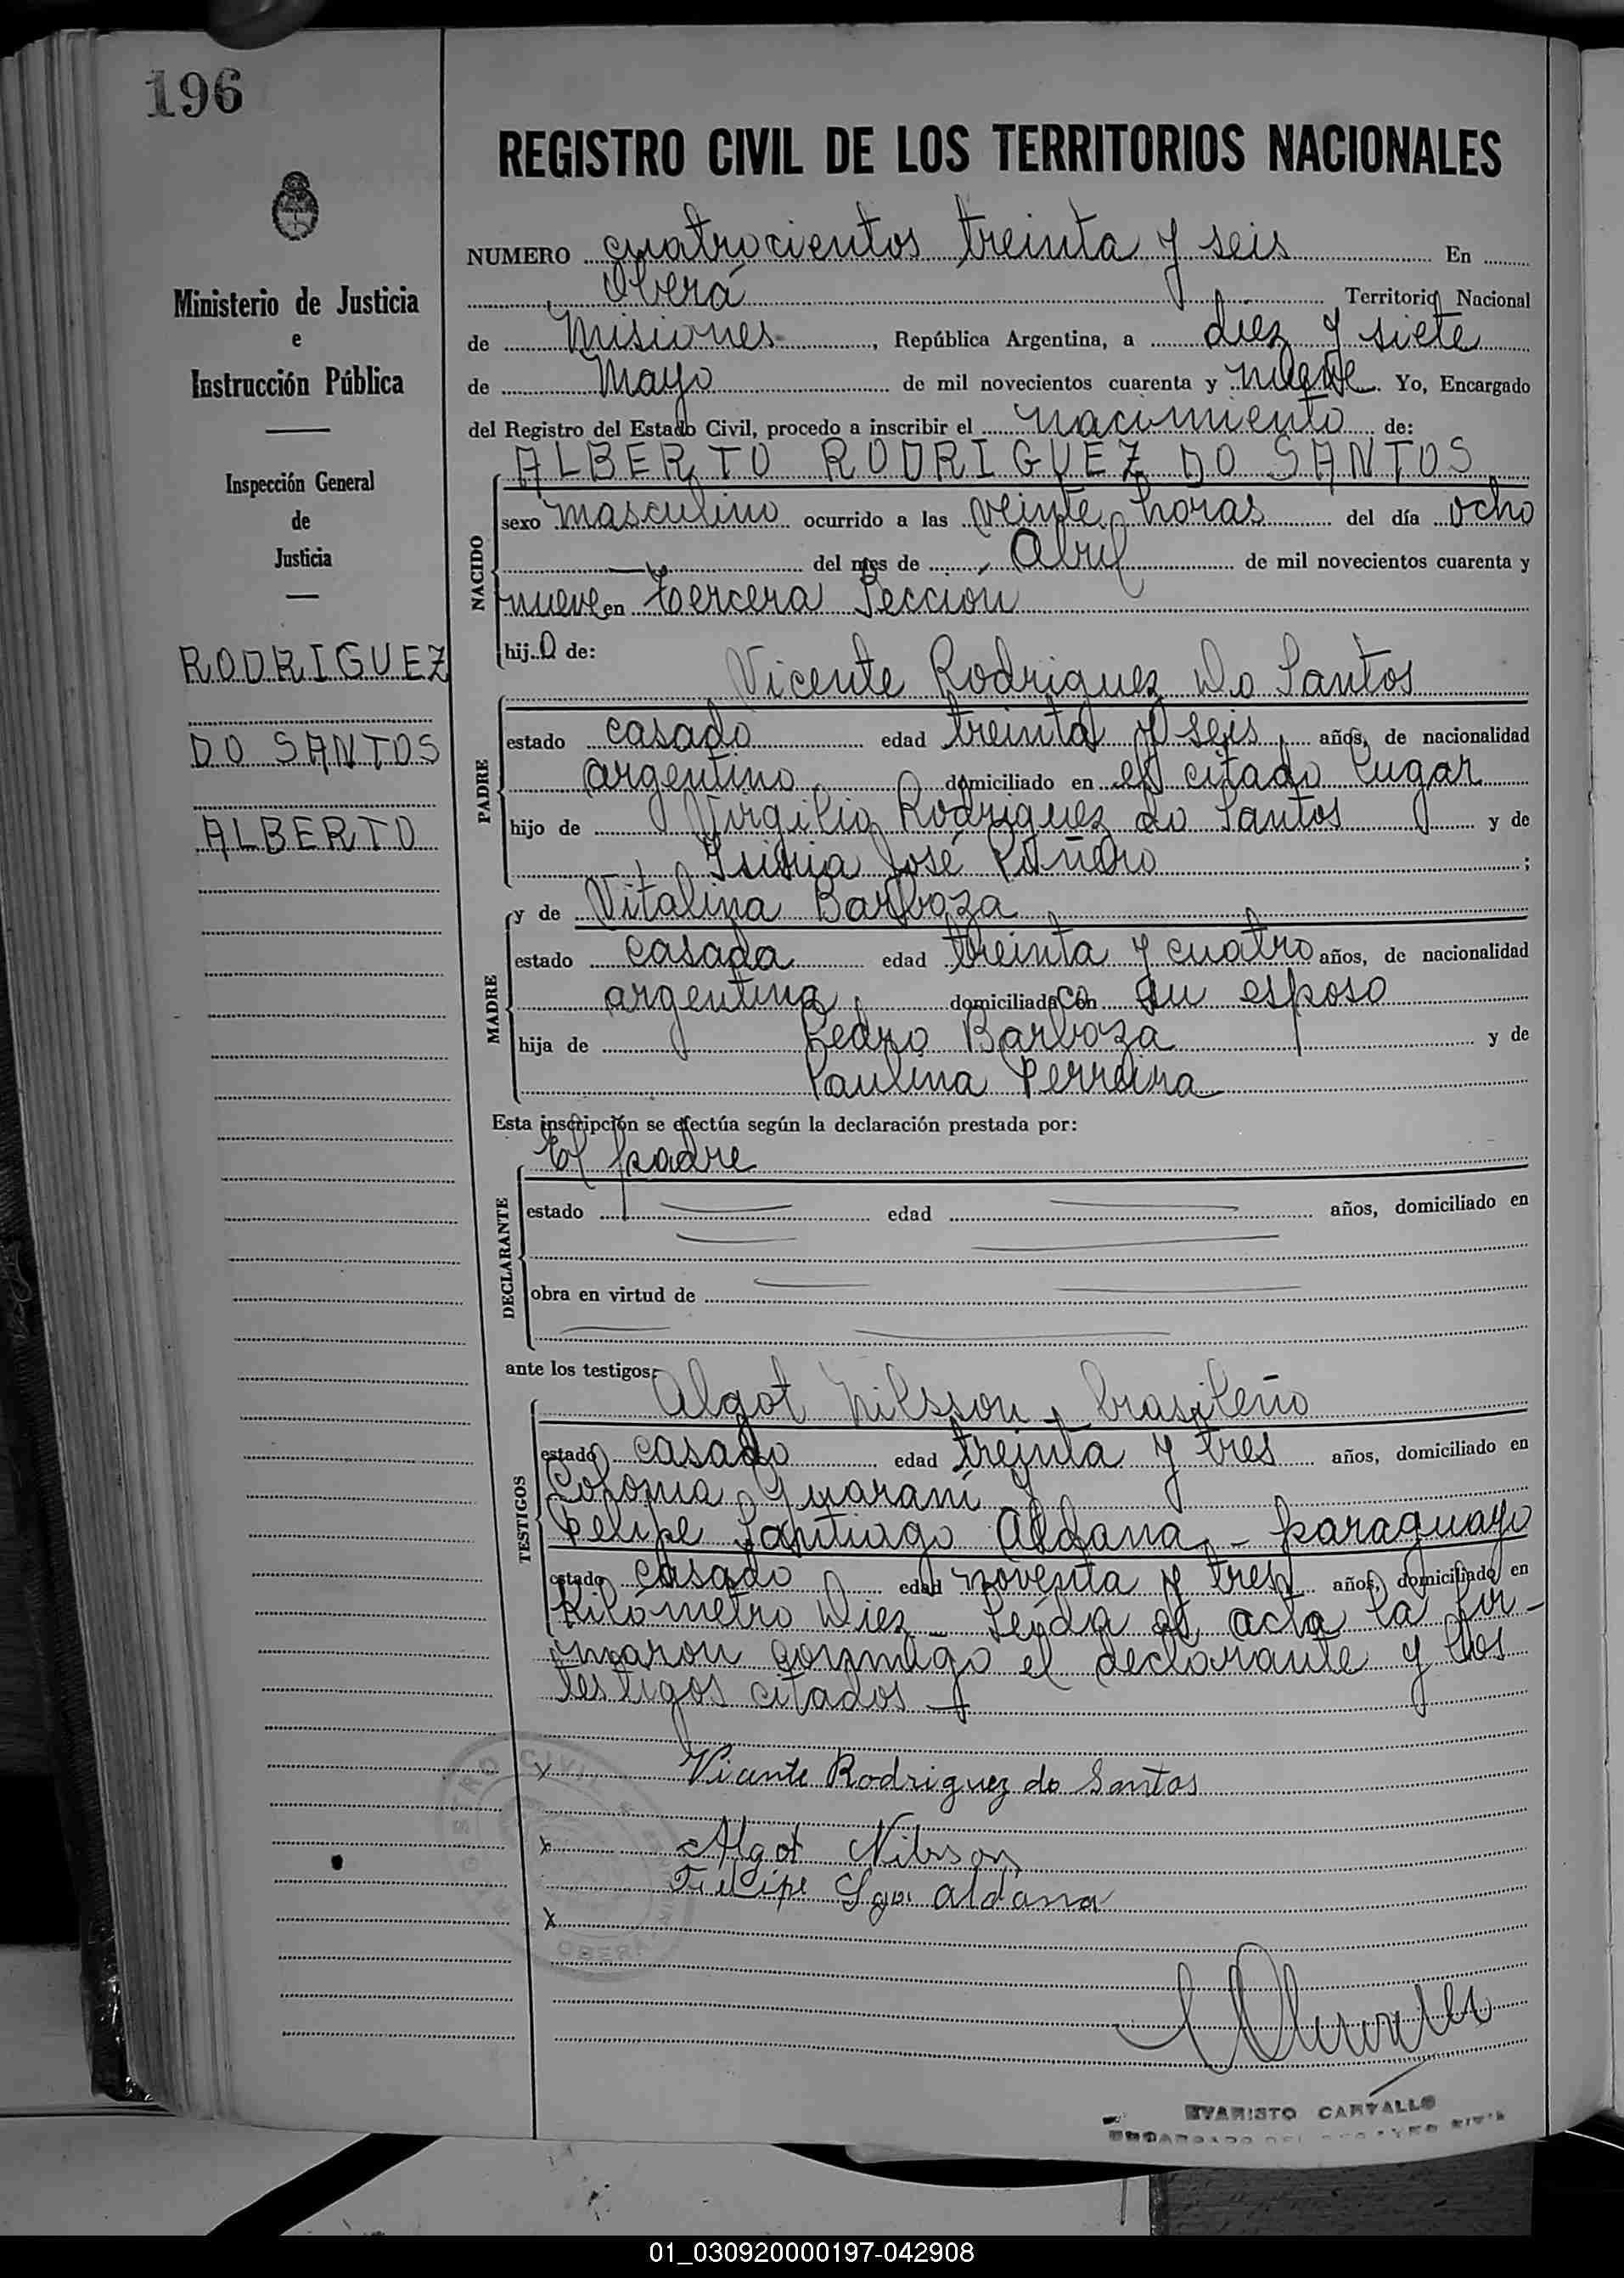 196
REGISTRO CIVIL DE LOS TERRITORIOS NACIONALES
Ministerio de Justicia
e
Instrucción Pública
Inspección General
de
Justicia
RODRIGUEZ
DO SANTOS
ALBERTO
NUMERO cuatrocientos treinta y seis En
Oberá Territorio Nacional
de Misiones, República Argentina, a diez y siete
de Mayo de mil novecientos cuarenta y nueve. Yo, Encargado
del Registro del Estado Civil, procedo a inscribir el nacimiento de:
ALBERTO RODRIGUEZ DO SANTOS
NACIDO
sexo masculino ocurrido a las veinte horas del día ocho
del mes de Abril de mil novecientos cuarenta y
nueve en tercera Sección
hijo de:
Vicente Rodriguez Do Santos
PADRE
estado casado edad treinta y seis años, de nacionalidad
argentino domiciliado en el citado lugar
hijo de Virgilio Rodriguez do Santos y de
José ;
y de Vitalina Barboza
MADRE
estado casada edad treinta y cuatro años, de nacionalidad
argentina domiciliada con su esposo
hija de Pedro Barboza y de
Paulina Ferreira
Esta inscripción se efectúa según la declaración prestada por:
El padre
DECLARANTE
estado edad años, domiciliado en
obra en virtud de
ante los testigos:
Algot Nilsson, brasileño
TESTIGOS
estado casado edad treinta y tres años, domiciliado en
Colonia Guaraní y
Felipe Santiago Aldana - paraguayo
estado casado edad noventa y tres años, domiciliado en
Kilómetro Diez - Leída el acta la fir-
maron conmigo el declarante y los
testigos citados
x Vicente Rodriguez do Santos
x Algot Nilsson
Felipe Sgo. Aldana
x
OBERA
EVARISTO CARVALLO